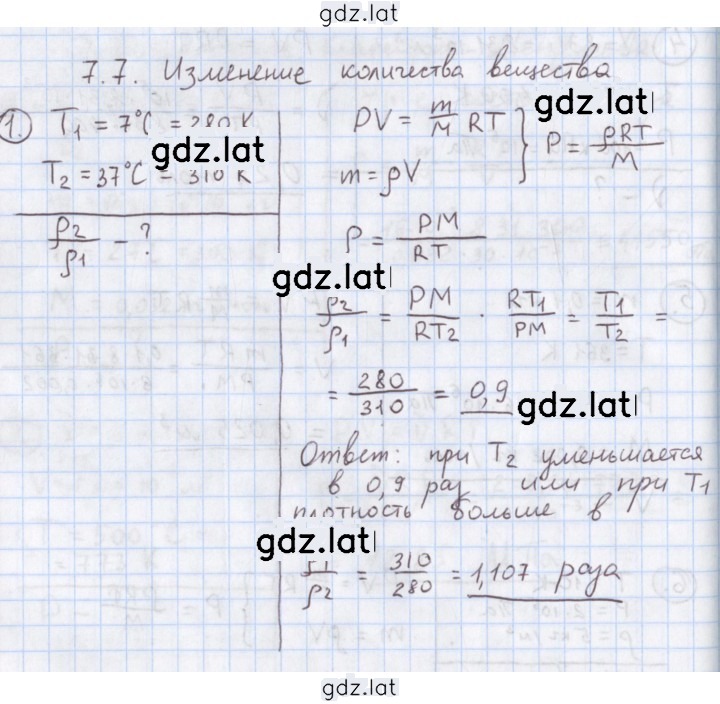 gdz.lat
7.7. Изменение количества вещества
1. T₁ = 7°C = 280 K
T₂ = 37°C = 310 K
ρ₂/ρ₁ - ?
PV = m/M RT
m = ρV
} P = ρRT/M
gdz.lat
gdz.lat
ρ = PM/RT
gdz.lat
ρ₂/ρ₁ = PM/RT₂ · RT₁/PM = T₁/T₂ =
= 280/310 = 0,9
gdz.lat
Ответ: при T₂ уменьшается
в 0,9 раз или при T₁
плотность больше в
gdz.lat
ρ₁/ρ₂ = 310/280 = 1,107 раза
gdz.lat